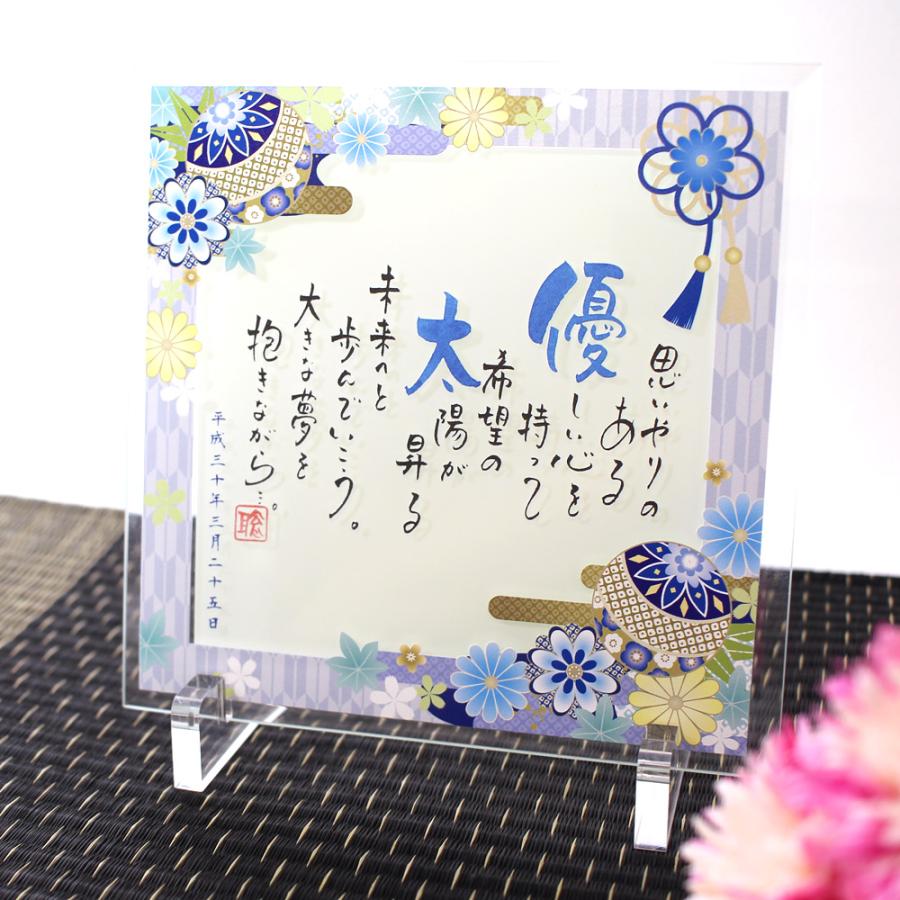 思いやりの
ある
優しい心を
持って
希望の
太陽が
昇る
未来へと
歩んでいこう。
大きな夢を
抱きながら…。
平成三十年三月二十五日
聡